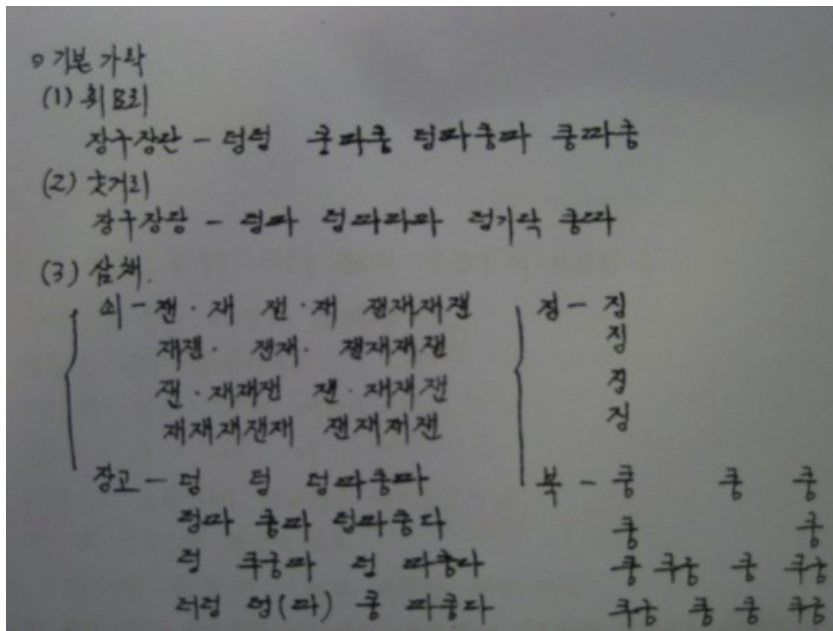 ○ 기본 가락
(1) 휘모리
장구장단 - 덩덩 쿵따쿵 덩따쿵따 쿵따쿵
(2) 굿거리
장구장단 - 덩따 덩따따따 덩기닥 쿵따
(3) 삼채.
쇠 - 잰·재 잰·재 잰재재잰
재잰· 잰재· 잰재재잰
잰·재재잰 잰·재재잰
재재재잰재 잰재재잰
징 - 징
징
징
징
장고 - 덩 덩 덩따쿵따
덩따 쿵따 덩따쿵다
덩 쿠궁따 덩 따쿵다
더덩 덩(따) 쿵 따쿵다
북 - 쿵 쿵 쿵
쿵 쿵
쿵 쿠궁 쿵 쿠궁
쿠궁 쿵 쿵 쿠궁